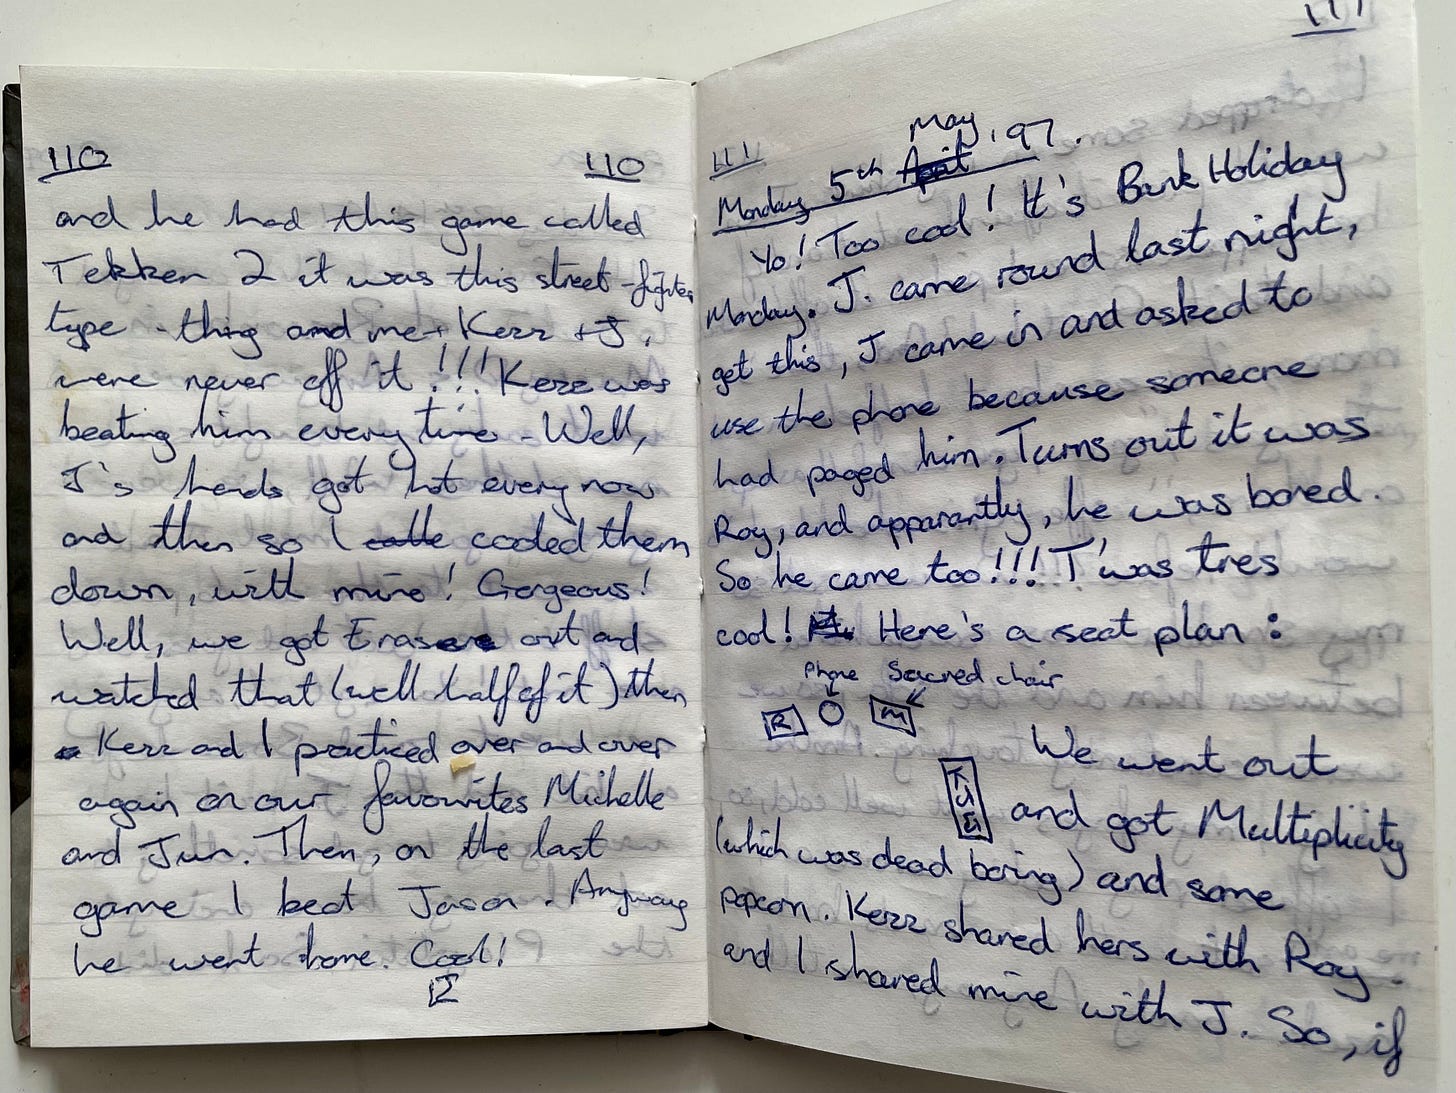 110 110
and he had this game called
Tekken 2 it was this street-fighter
type - thing and me + Kerr + J.
were never off it!!! Kerr was
beating him everytime - Well,
J's hands got hot every now
and then so I cooled them
down, with mine! Gorgeous!
Well, we got Eraser out and
watched that (well half of it) then
Kerr and I practiced over and over
again on our favourites Michelle
and Jun. Then, on the last
game I beat Jason. Anyway
he went home. Cool!
111
111
Monday 5th May '97.
Yo! Too cool! It's Bank Holiday
Monday. J. came round last night,
get this, J came in and asked to
use the phone because someone
had paged him. Turns out it was
Roy, and apparantly, he was bored.
So he came too!!! T'was tres
cool! Here's a seat plan:
Phone Sacred chair
R M
We went out
and got Multiplicity
(which was dead boring) and some
popcorn. Kerr shared hers with Roy.
and I shared mine with J. So, if